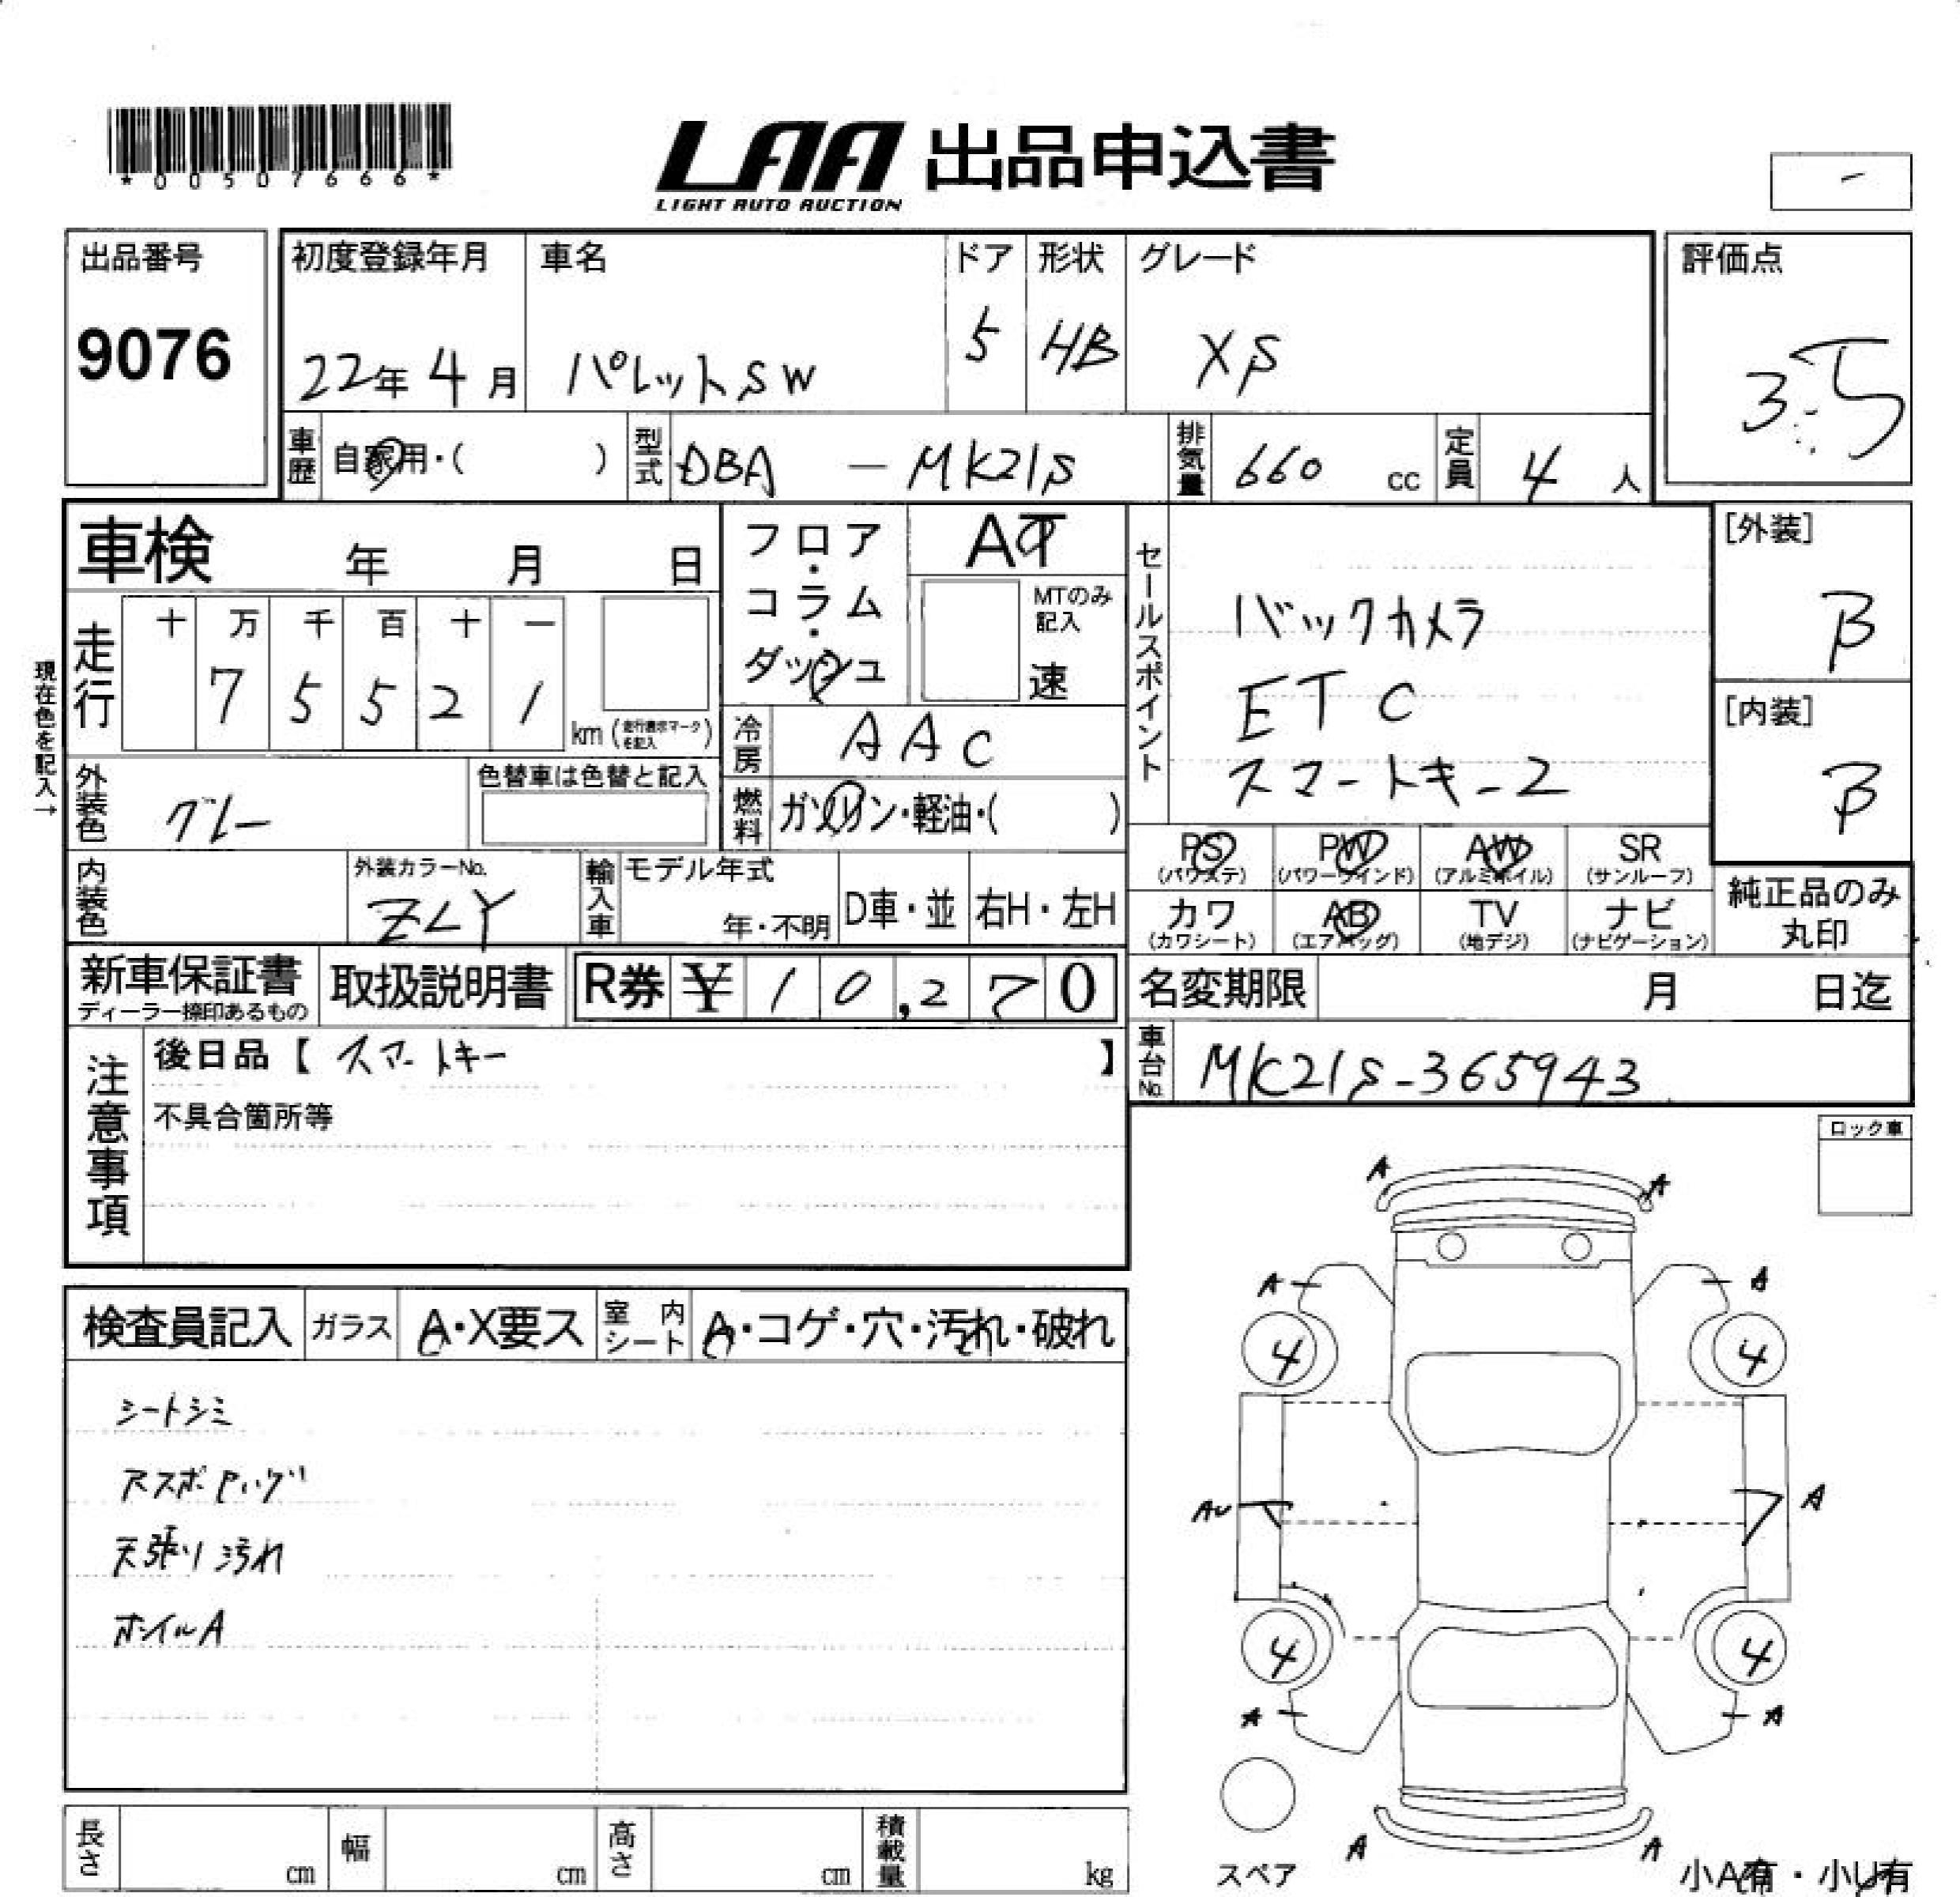 *00507666*
LAA 出品申込書
LIGHT AUTO AUCTION
-
出品番号
9076
初度登録年月 車名 ドア 形状 グレード
22年 4月 パレットSW 5 HB XS
評価点
3.5
車歴 自家用・( ) 型式 DBA - MK21S 排気量 660 cc 定員 4 人
車検 年 月 日
フロア・コラム・ダッシュ
AT
MTのみ記入
速
セールスポイント
バックカメラ
ETC
スマートキー2
[外装]
B
[内装]
B
現在色を記入→
走行 十 万 千 百 十 一
7 5 5 2 1
km (走行表示マークを記入)
冷房 AAC
燃料 ガソリン・軽油・( )
外装色 グレー
色替車は色替と記入
内装色
外装カラーNo.
ZLY
輸入車 モデル年式
年・不明 D車・並 右H・左H
PS PW AW SR
(パワステ) (パワーウインド) (アルミホイル) (サンルーフ)
カワ AB TV ナビ
(カワシート) (エアバッグ) (地デジ) (ナビゲーション)
純正品のみ
丸印
新車保証書
ディーラー捺印あるもの
取扱説明書 R券 ¥ 10,270
名変期限 月 日迄
車台No. MK21S-365943
注意事項
後日品【 スマートキー 】
不具合箇所等
ロック車
検査員記入 ガラス A・X要ス 室内シート A・コゲ・穴・汚れ・破れ
シートシミ
天張り汚れ
ホイルA
A A
A A
4 4
AU A
4 4
A A
A A
スペア
小A有・小U有
長さ cm 幅 cm 高さ cm 積載量 kg